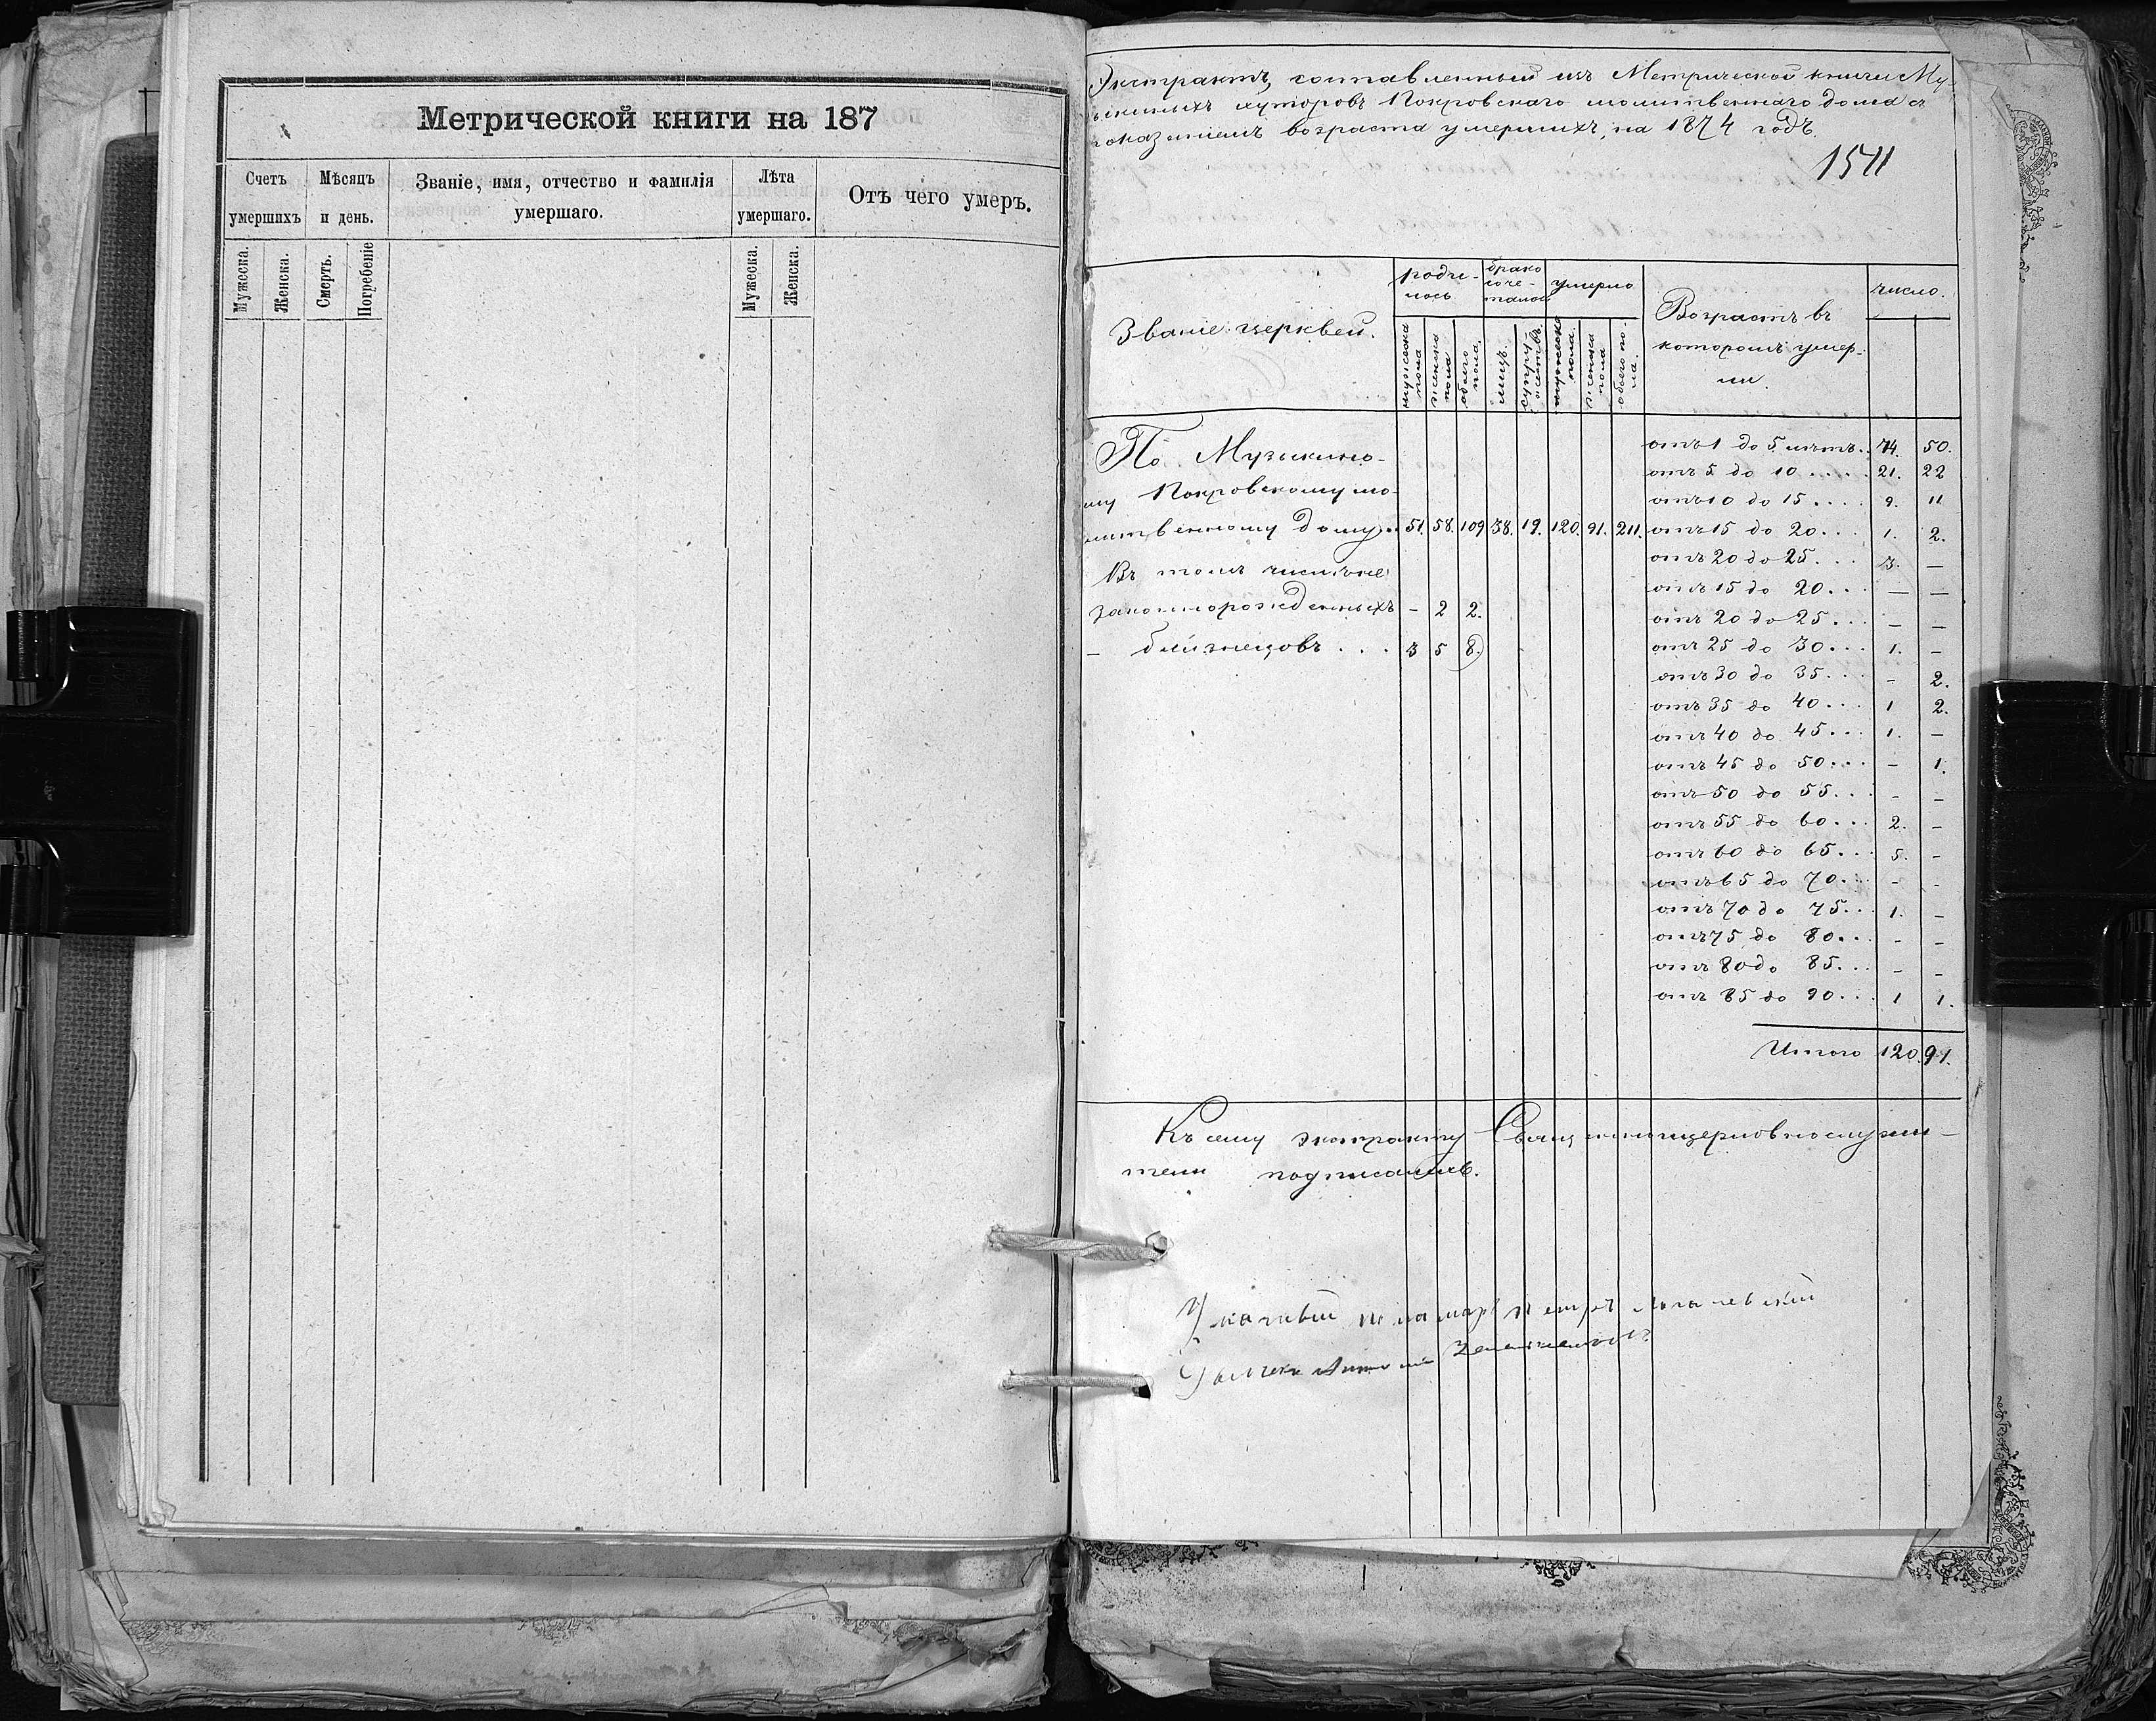 Метрической книги на 187
Счетъ умершихъ
Мѣсяцъ и день.
Званіе, имя, отчество и фамилія умершаго.
Лѣта умершаго.
Отъ чего умеръ.
Мужеска.
Женска.
Смерть.
Погребеніе
Мужеска.
Женска.
Экстрактъ, составленный изъ Метрической книги Му-
хуторовъ Покровскаго молитвеннаго дома съ
возраста умершихъ, на 1874 годъ.
1511
Званіе церквей.
родилось
бракосочеталось
умерло
Возрастъ въ которомъ умерли.
число.
мужеска пола
женска пола
обоего пола
лицъ.
супружествъ.
мужеска пола.
женска пола
обоего пола.
По Музыкино-
му Покровскому мо-
литвенному дому . . 51. 58. 109 38. 19. 120. 91. 211.
Въ томъ числѣ не
законнорожденныхъ - 2 2.
- близнецовъ . . . 3 5 8.
отъ 1 до 5 лѣтъ. . 74. 50.
отъ 5 до 10 . . . . . 21. 22
отъ 10 до 15 . . . . 9. 11
отъ 15 до 20 . . . 1. 2.
отъ 20 до 25 . . . . 3. —
отъ 15 до 20 . . . — —
отъ 20 до 25 . . . — —
отъ 25 до 30 . . . 1. -
отъ 30 до 35 . . . - 2.
отъ 35 до 40 . . . 1 2.
отъ 40 до 45 . . . 1. -
отъ 45 до 50 . . . - 1.
отъ 50 до 55 . . . - -
отъ 55 до 60 . . . 2. -
отъ 60 до 65 . . . 5. -
отъ 65 до 70 . . . - -
отъ 70 до 75 . . . 1. -
отъ 75 до 80 . . . - -
отъ 80 до 85 . . . - -
отъ 85 до 90 . . . 1 1.
Итого 120. 91.
Къ сему экстракту Священноцерковнослужи-
тели подписались.
пономарь Петръ